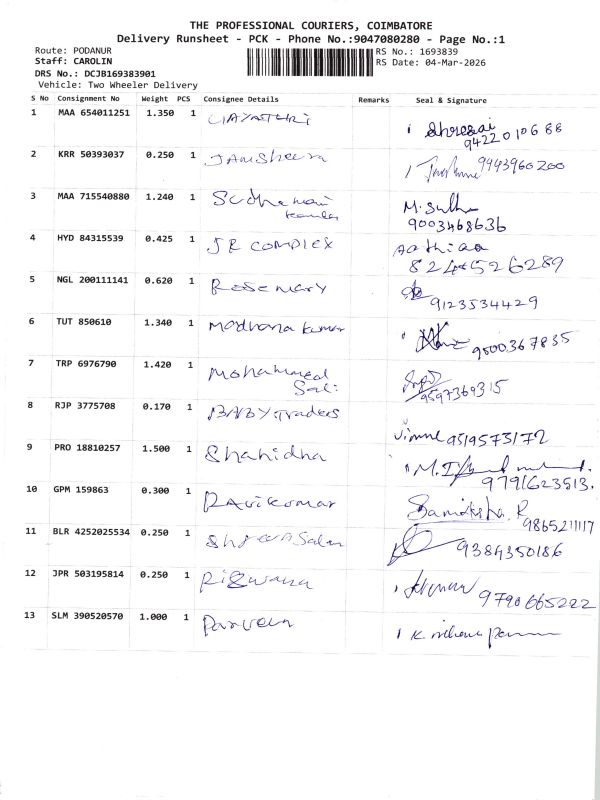 THE PROFESSIONAL COURIERS, COIMBATORE
Delivery Runsheet - PCK - Phone No.:9047080280 - Page No.:1
Route: PODANUR
RS No.: 1693839
Staff: CAROLIN
RS Date: 04-Mar-2026
DRS No.: DCJB169383901
Vehicle: Two Wheeler Delivery
S No Consignment No Weight PCS Consignee Details Remarks Seal & Signature
1 MAA 654011251 1.350 1 GAYATHRI
9422010688
2 KRR 50393037 0.250 1 Jamsheera 9943960200
3 MAA 715540880 1.240 1 Sudhamani M. Sudha
9003468636
4 HYD 84315539 0.425 1 JR COMPLEX Aathiaa
8244526289
5 NGL 200111141 0.620 1 Rosemary
9123534429
6 TUT 850610 1.340 1 Madhana Kumar
9500367835
7 TRP 6976790 1.420 1 Mohammed
Sali 9597369315
8 RJP 3775708 0.170 1 BABY Traders
9519573172
9 PRO 18810257 1.500 1 Shahidha
9791623513.
10 GPM 159863 0.300 1 Ravikumar Samiksha. R
9865211117
11 BLR 4252025534 0.250 1
9384350186
12 JPR 503195814 0.250 1 Rizwana
9790665222
13 SLM 390520570 1.000 1 Parveen